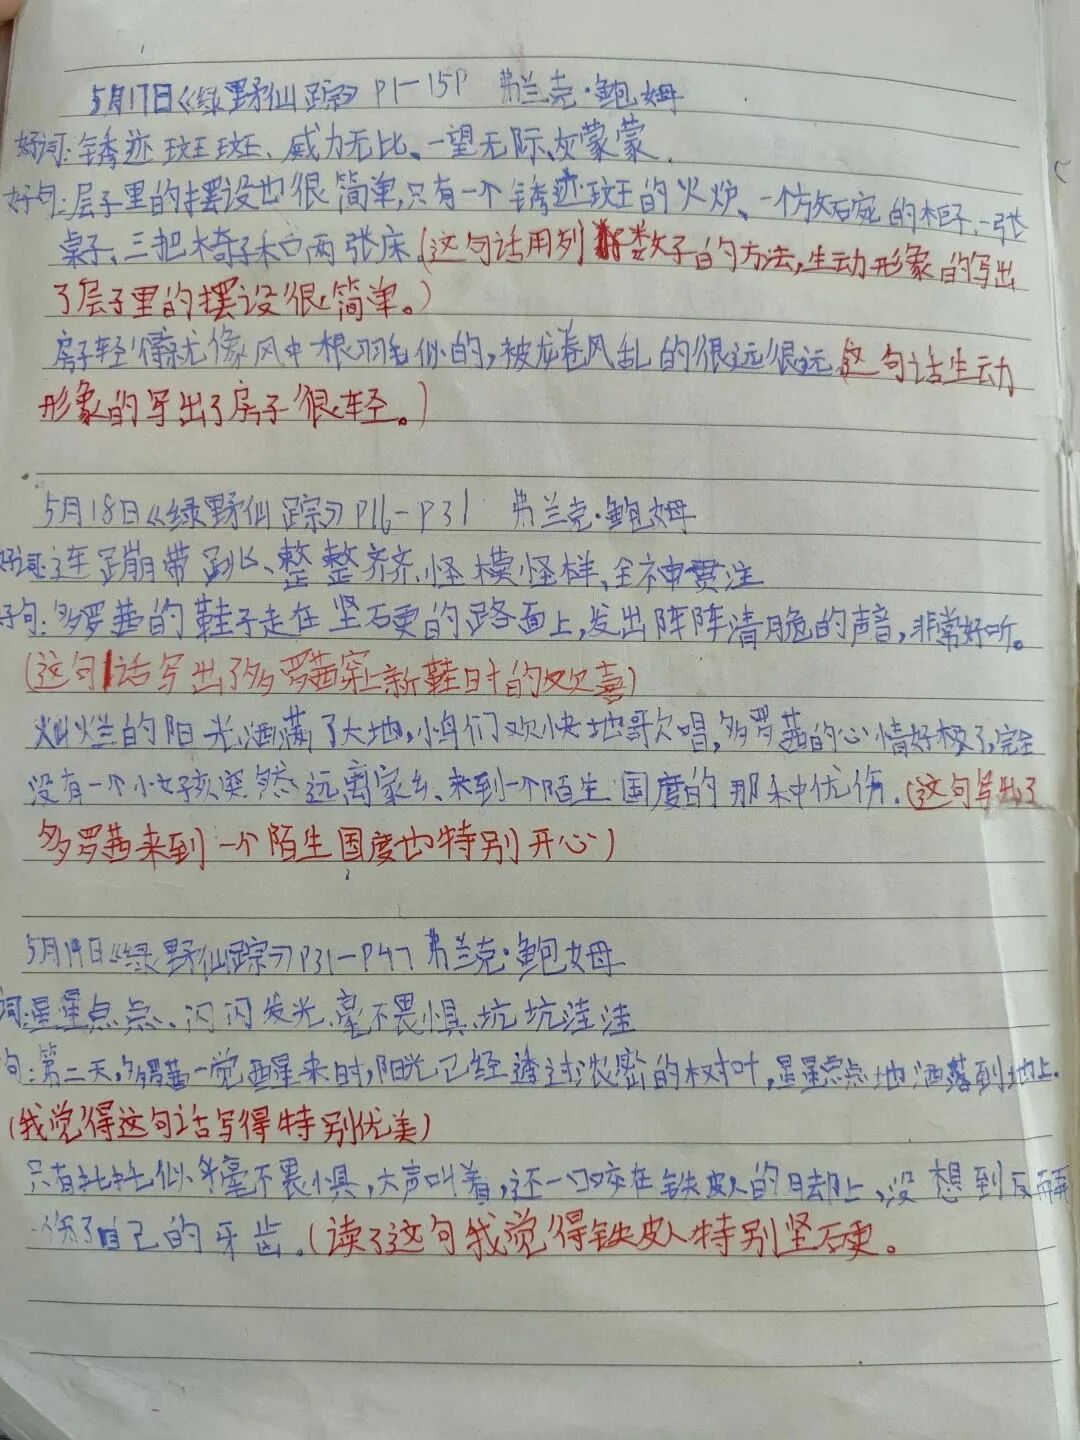 5月17日《绿野仙踪》P1-15P 弗兰克·鲍姆
好词:锈迹斑斑、威力无比、一望无际、灰蒙蒙
好句:屋子里的摆设也很简单,只有一个锈迹斑的火炉、一个放碗的柜子、一张
桌子、三把椅子和两张床(这句话用列数子的方法,生动形象的写出
了层子里的摆设很简单。)
房子轻得就像风中一根羽毛似的,被龙卷风乱的很远很远(这句话生动
形象的写出了房子很轻。)
5月18日《绿野仙踪》P16-P31 弗兰克·鲍姆
好词:连蹦带跳、整整齐齐、怪模怪样、全神贯注
子句:多罗茜的鞋子走在坚硬的路面上,发出阵阵清脆的声音,非常好听。
(这句话写出了多罗茜穿上新鞋时的欢喜)
灿烂的阳光洒满了大地,小鸟们欢快地歌唱,多罗茜的心情好极了,完全
没有一个小女孩突然远离家乡、来到一个陌生国度的那种忧伤.(这句写出了
多罗茜来到一个陌生国度也特别开心)
5月19日《绿野仙踪》P31-P47 弗兰克·鲍姆
词:星星点点、闪闪发光、毫不畏惧、坑坑洼洼
句:第二天,多罗茜一觉醒来时,阳光已经透过浓密的树叶,星星点点地洒落到地上.
(我觉得这句话写得特别优美)
只有托托似乎毫不畏惧,大声叫着,还一口咬在铁皮人的脚上,没想到反而弄
伤了自己的牙齿.(读了这句我觉得铁皮人特别坚硬。